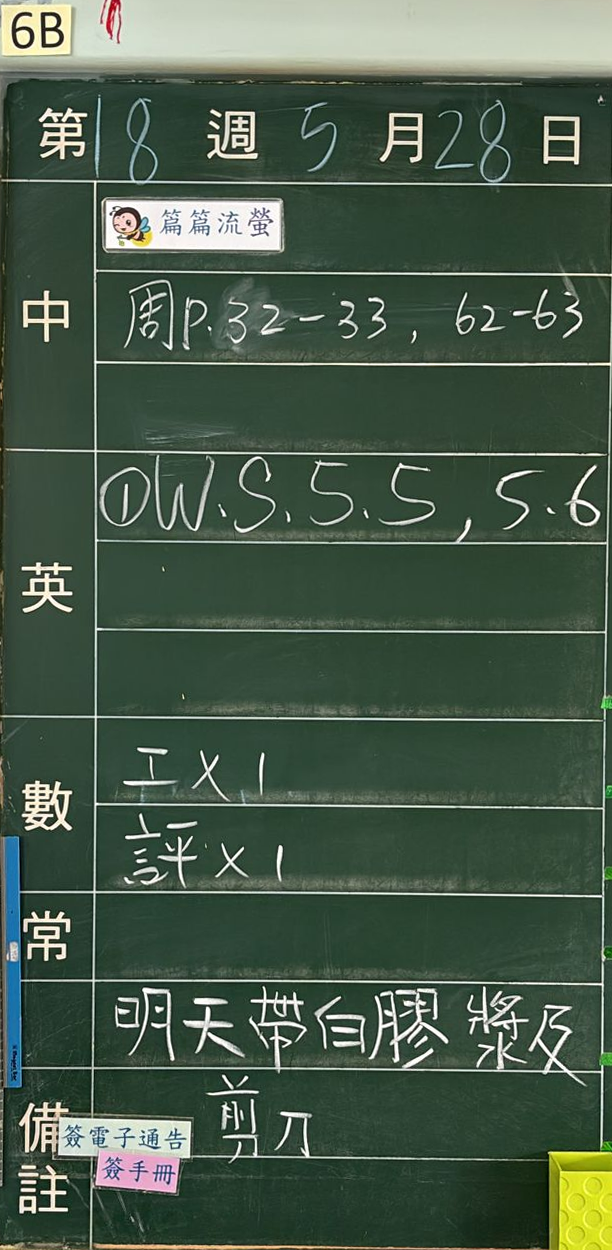 6B
第18週5月28日
中
篇篇流螢
周P.32-33, 62-63
英
①W.S.5.5, 5.6
數
工×1
評×1
常
明天帶白膠漿及
剪刀
備註
簽電子通告
簽手冊